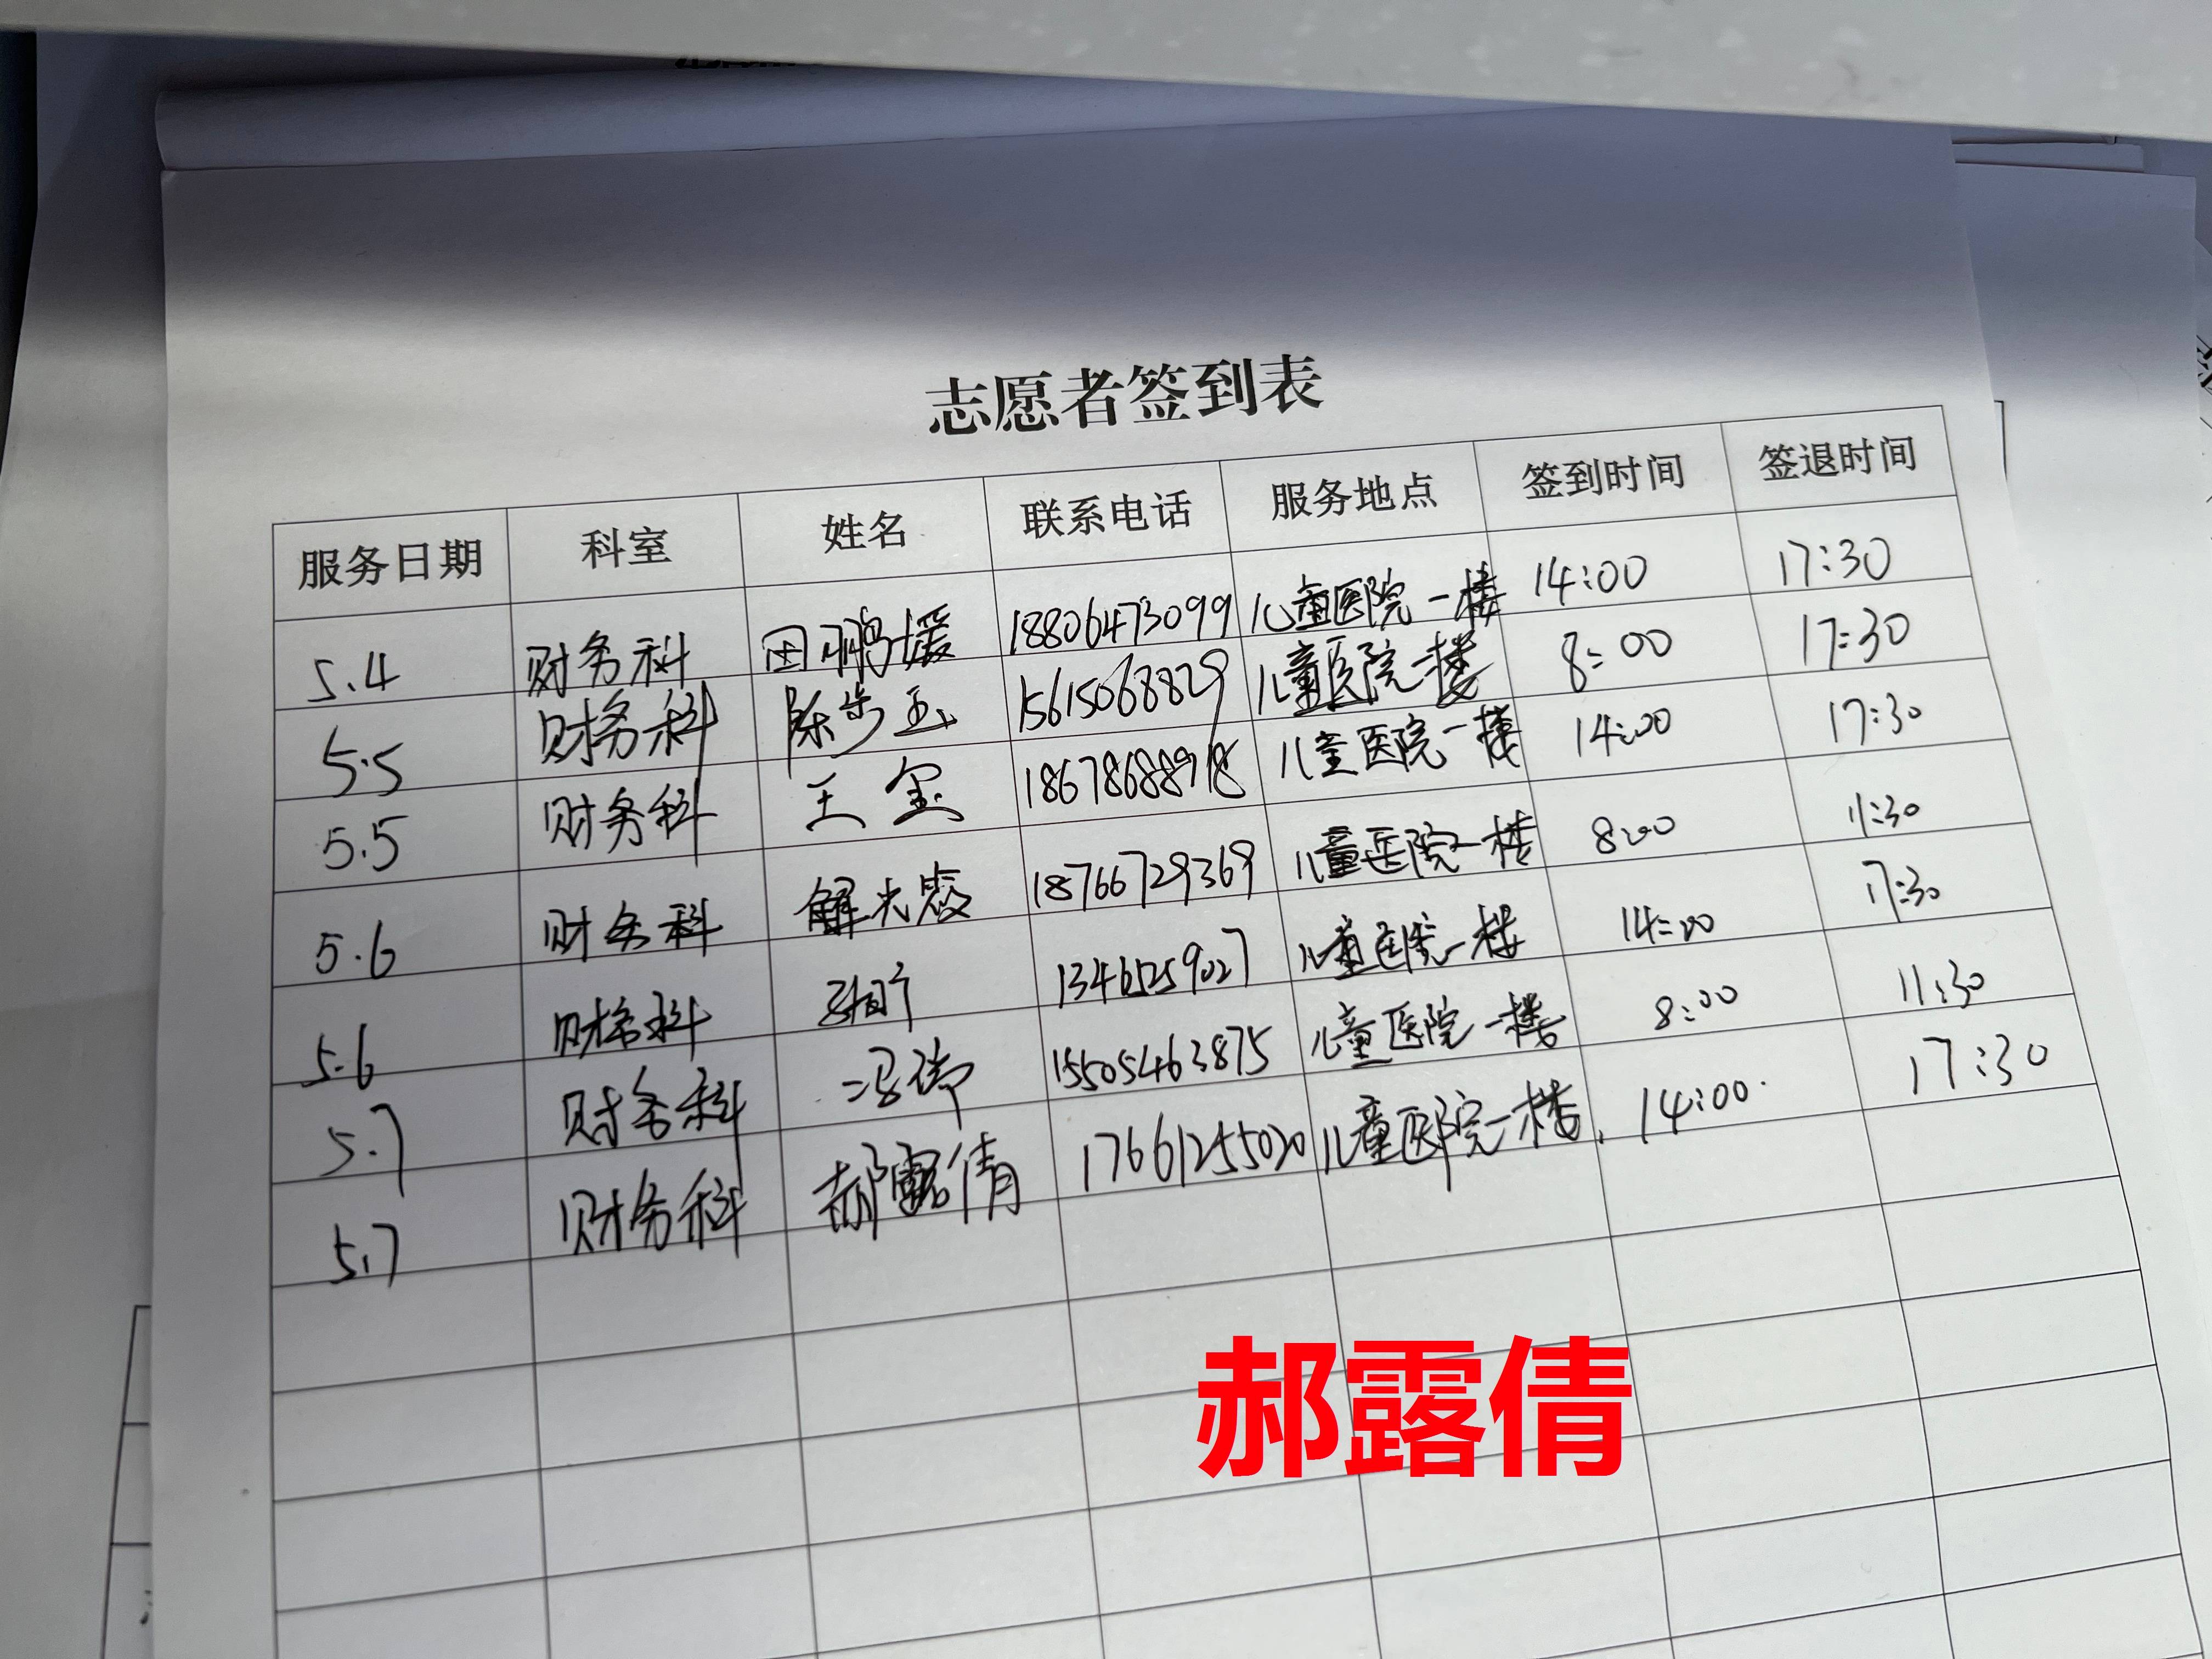 志愿者签到表
服务日期 科室 姓名 联系电话 服务地点 签到时间 签退时间
5.4 财务科 田鹏媛 18806473099 儿童医院一楼 14:00 17:30
5.5 财务科 陈步玉 15615068829 儿童医院一楼 8:00 17:30
5.5 财务科 王玺 儿童医院一楼 14:00 17:30
5.6 财务科 解光 18766729369 儿童医院一楼 8:00 11:30
5.6 财务科 儿童医院一楼 14:00 17:30
5.7 财务科 冯 15505463875 儿童医院一楼 8:00 11:30
5.7 财务科 郝露倩 17661255020 儿童医院一楼. 14:00 17:30
郝露倩